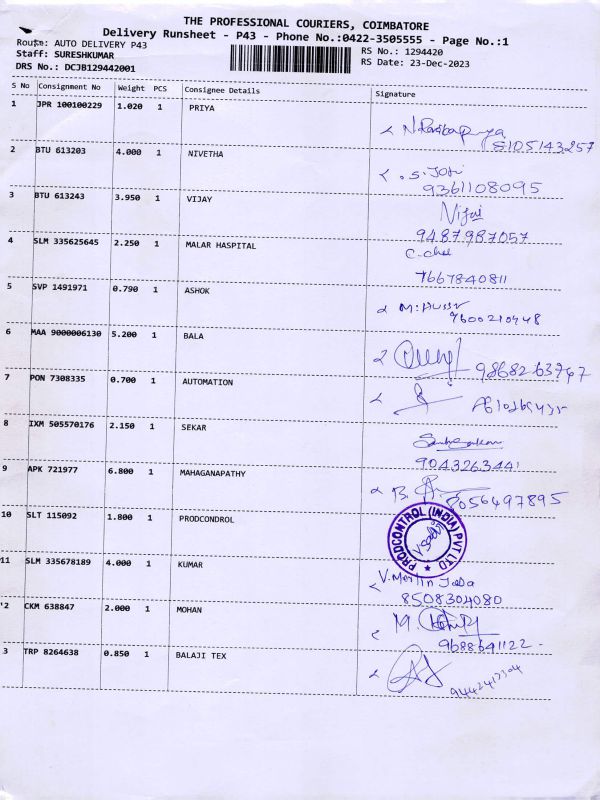 THE PROFESSIONAL COURIERS, COIMBATORE
Delivery Runsheet - P43 - Phone No.:0422-3505555 - Page No.:1
Route: AUTO DELIVERY P43
RS No.: 1294420
Staff: SURESHKUMAR
RS Date: 23-Dec-2023
DRS No.: DCJB129442001
S No Consignment No Weight PCS Consignee Details Signature
1 JPR 100100229 1.020 1 PRIYA
8105143257
2 BTU 613203 4.000 1 NIVETHA
S. Joti
9361108095
3 BTU 613243 3.950 1 VIJAY
Vijai
9487987057
4 SLM 335625645 2.250 1 MALAR HASPITAL
7667840811
5 SVP 1491971 0.790 1 ASHOK
9600210448
6 MAA 9000006130 5.200 1 BALA
7 PON 7308335 0.700 1 AUTOMATION
8 IXM 505570176 2.150 1 SEKAR
9043263441
9 APK 721977 6.800 1 MAHAGANAPATHY
8056497895
10 SLT 115092 1.800 1 PRODCONDROL
PRODCONTROL (INDIA) PVT LTD
11 SLM 335678189 4.000 1 KUMAR
V. Merlin
8508304080
2 CKM 638847 2.000 1 MOHAN
9688641122
3 TRP 8264638 0.850 1 BALAJI TEX